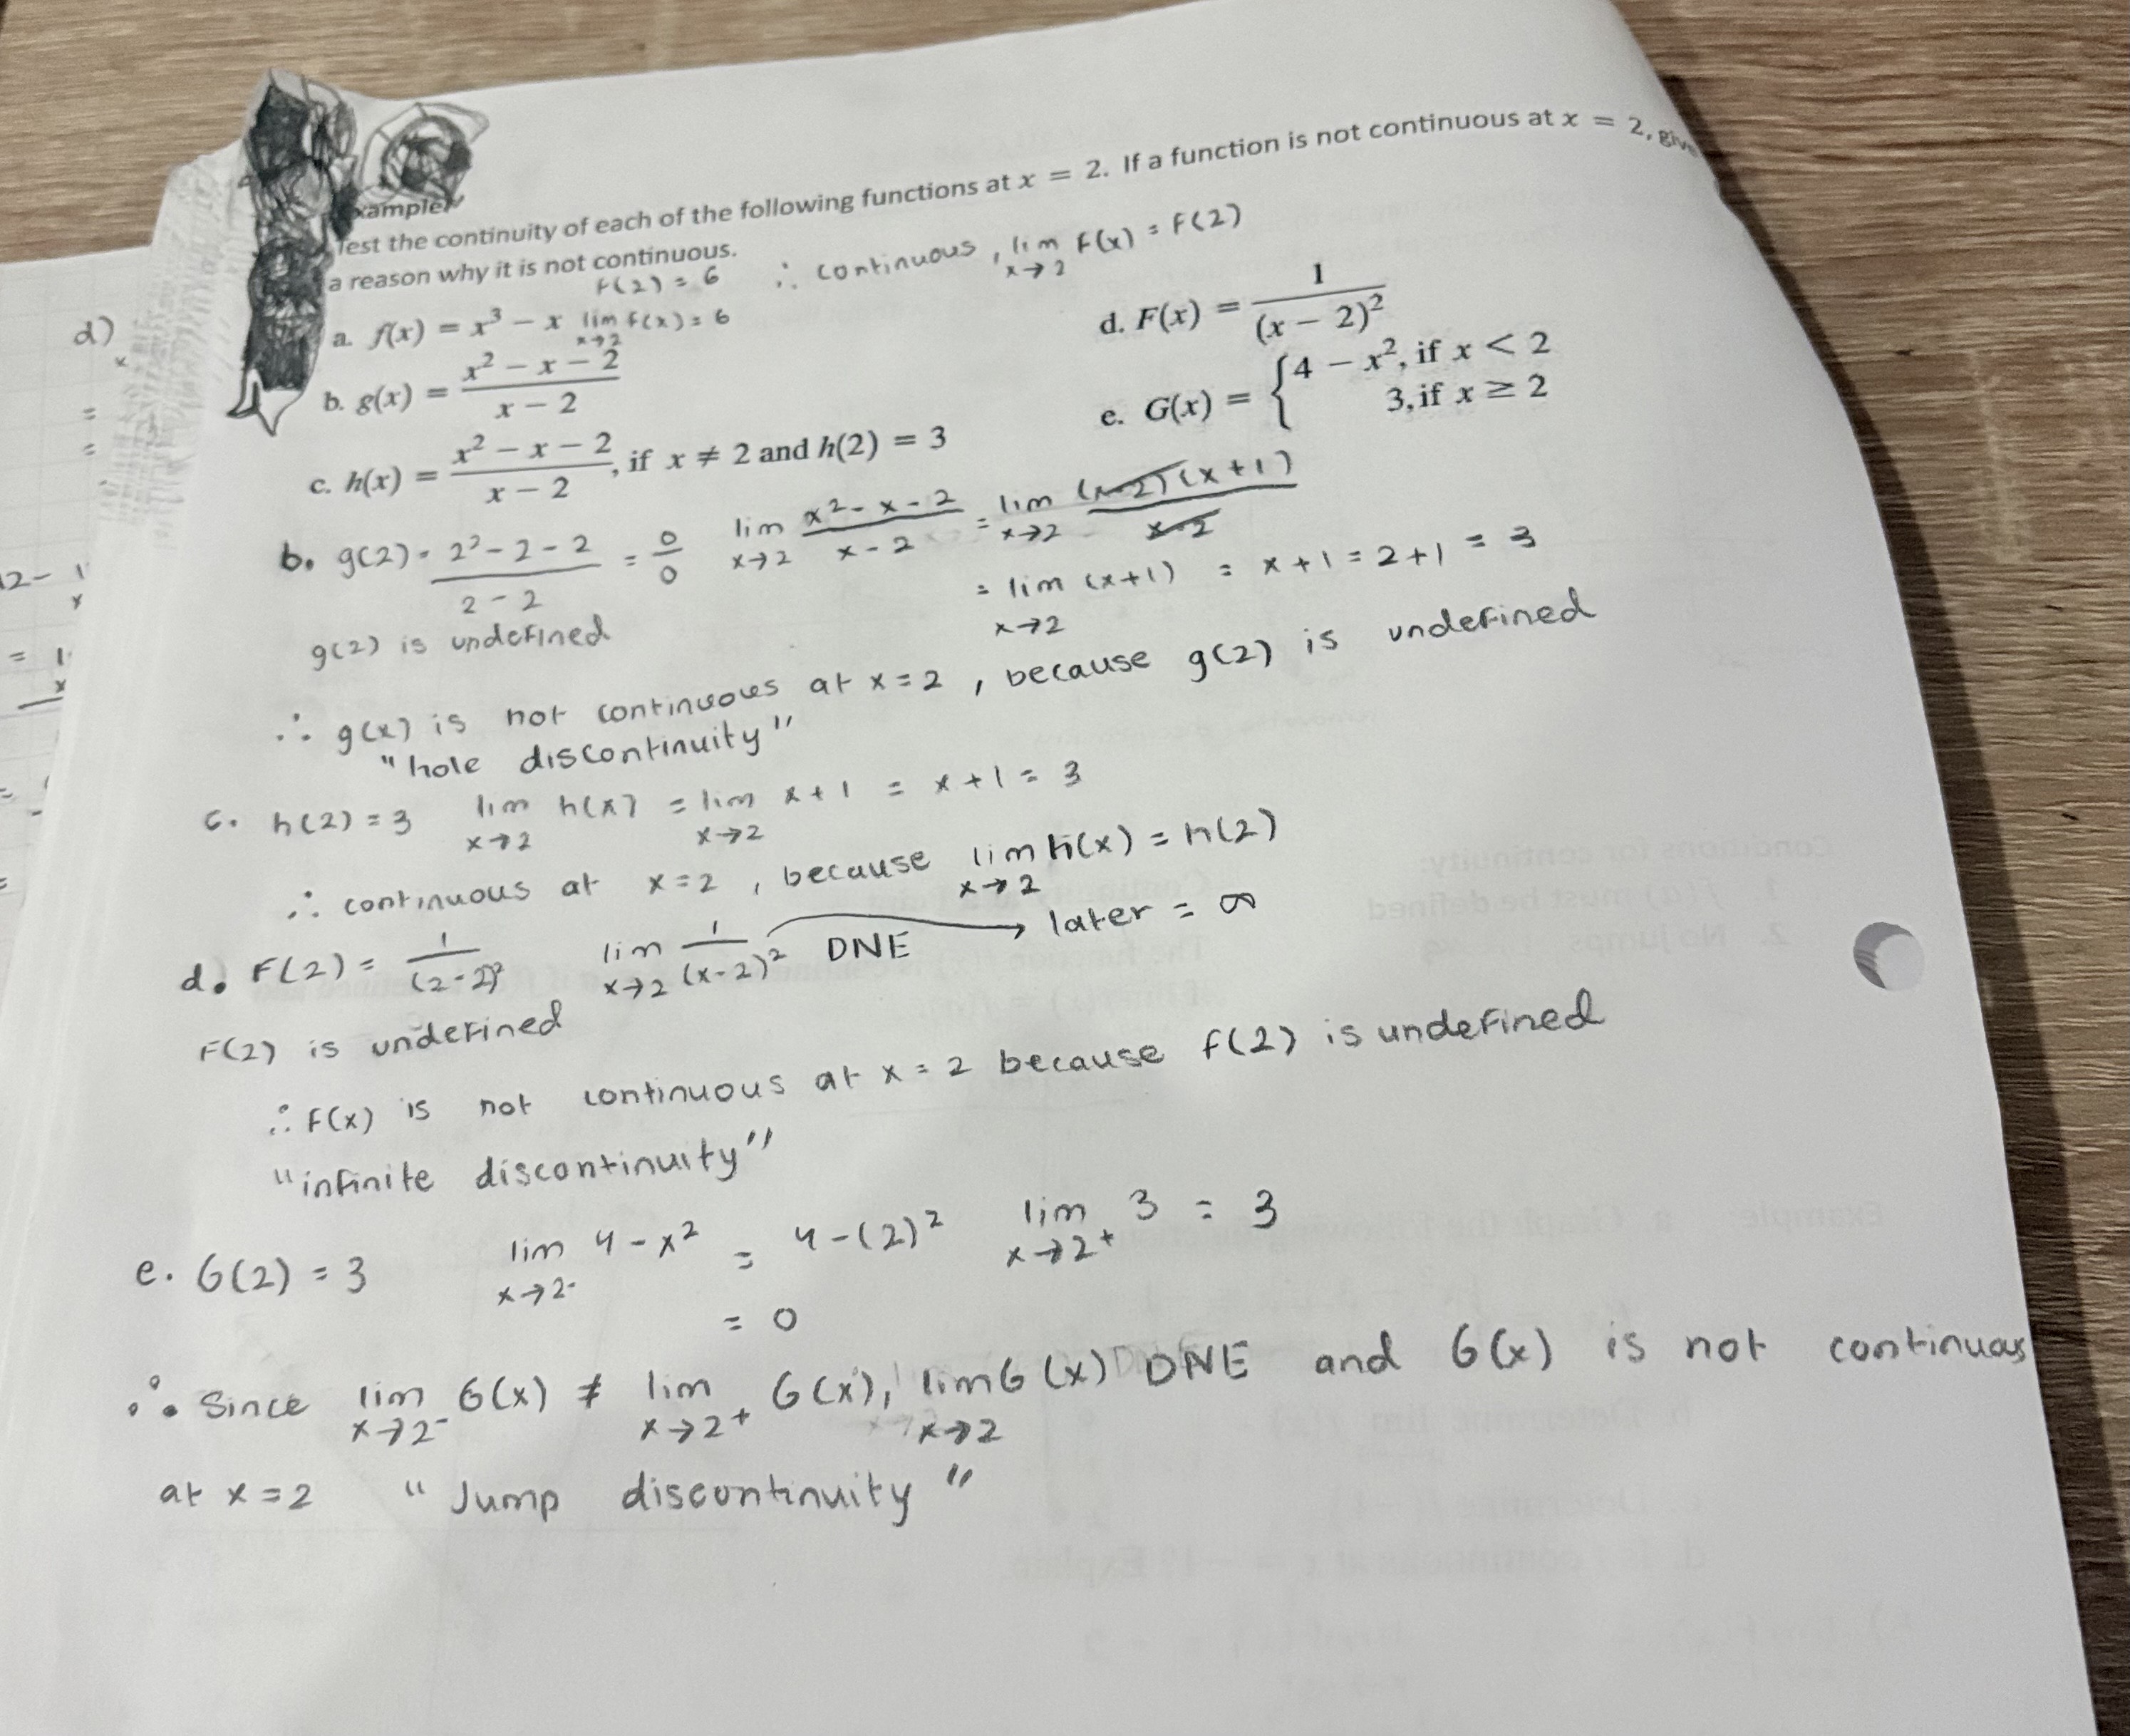 xample
Test the continuity of each of the following functions at x = 2. If a function is not continuous at x = 2, give
a reason why it is not continuous.
F(2) = 6 ∴ continuous, lim x→2 F(x) = F(2)
a. f(x) = x³ − x lim x→2 f(x) = 6
b. g(x) = (x² − x − 2)/(x − 2)
c. h(x) = (x² − x − 2)/(x − 2), if x ≠ 2 and h(2) = 3
d. F(x) = 1/(x − 2)²
e. G(x) = { 4 − x², if x < 2
3, if x ≥ 2
b. g(2) = (2² - 2 - 2)/(2 - 2) = 0/0 lim x→2 (x² - x - 2)/(x - 2) = lim x→2 (x-2)(x+1)/(x-2)
= lim x→2 (x+1) = x+1 = 2+1 = 3
g(2) is undefined
∴ g(x) is not continuoues at x = 2, because g(2) is undefined
"hole discontinuity"
c. h(2) = 3 lim x→2 h(x) = lim x→2 x+1 = x+1 = 3
∴ continuous at x = 2, because lim x→2 h(x) = h(2)
d. F(2) = 1/(2-2)² lim x→2 1/(x-2)² DNE → later = ∞
F(2) is undefined
∴ F(x) is not continuous at x = 2 because f(2) is undefined
"infinite discontinuity"
e. G(2) = 3 lim x→2⁻ 4 - x² = 4 - (2)² lim x→2⁺ 3 = 3
= 0
∴ Since lim x→2⁻ G(x) ≠ lim x→2⁺ G(x), lim x→2 G(x) DNE and G(x) is not continuous
at x = 2 "Jump discontinuity"
d)